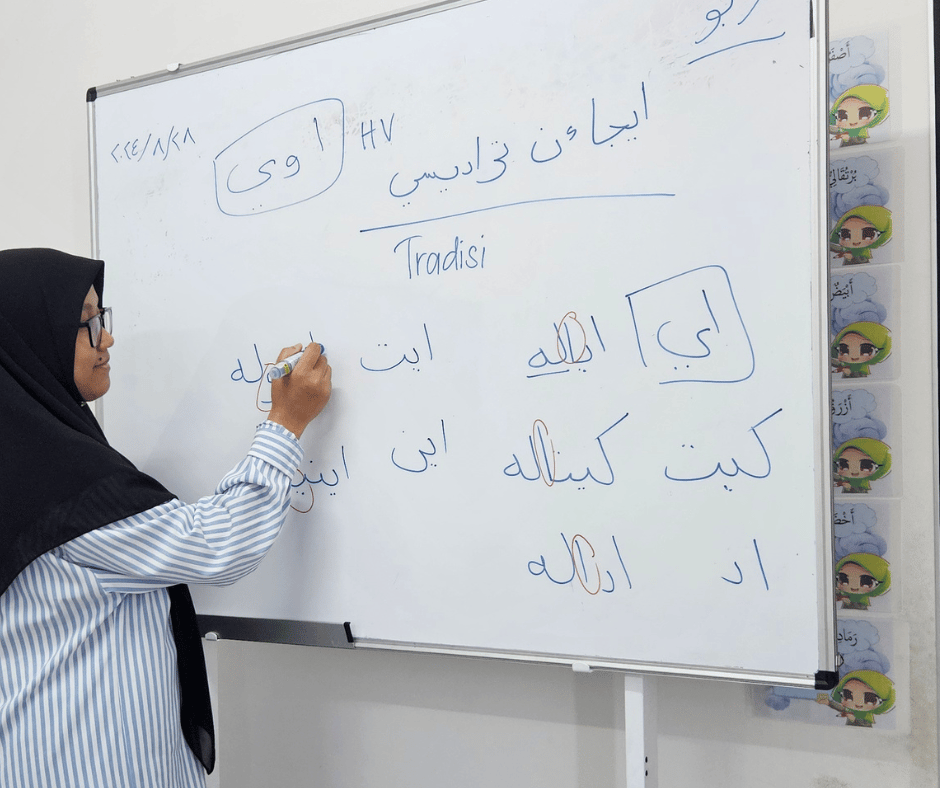 ربو
٢٠٢٤/٨/٢٨
ا وي HV
ايجاءن تراديسي
Tradisi
اي اياله ايت
كيت كيتاله اين
اد اداله
أَصْفَ
بُرْتُقَالِيّ
أَبْيَض
أَزْرَق
أَخْضَ
رَمَادِ